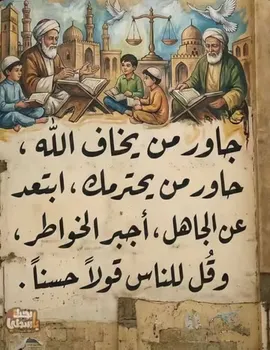 جاور من يخاف الله ،
حاور من يحترمك ، ابتعد
عن الجاهل ، أجبر الخواطر ،
وقُل للناس قولاً حسناً .